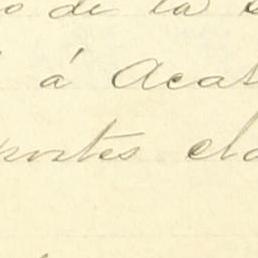 o de la
á Acat
portes ela